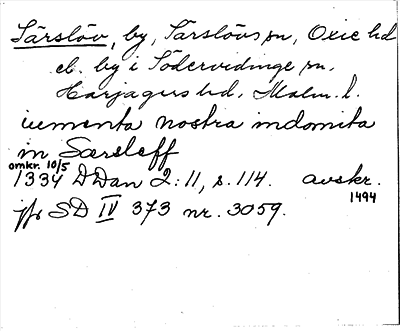 Särslöv, by, Särslövs sn, Oxie hd
el. by i Södervidinge sn,
Harjagers hd, Malm. l.
iumenta nostra indomita
in Særsleff
omkr. 10/5
1334 DDan 2:11, s. 114. avskr.
1494
jfr SD IV 373 nr. 3059.